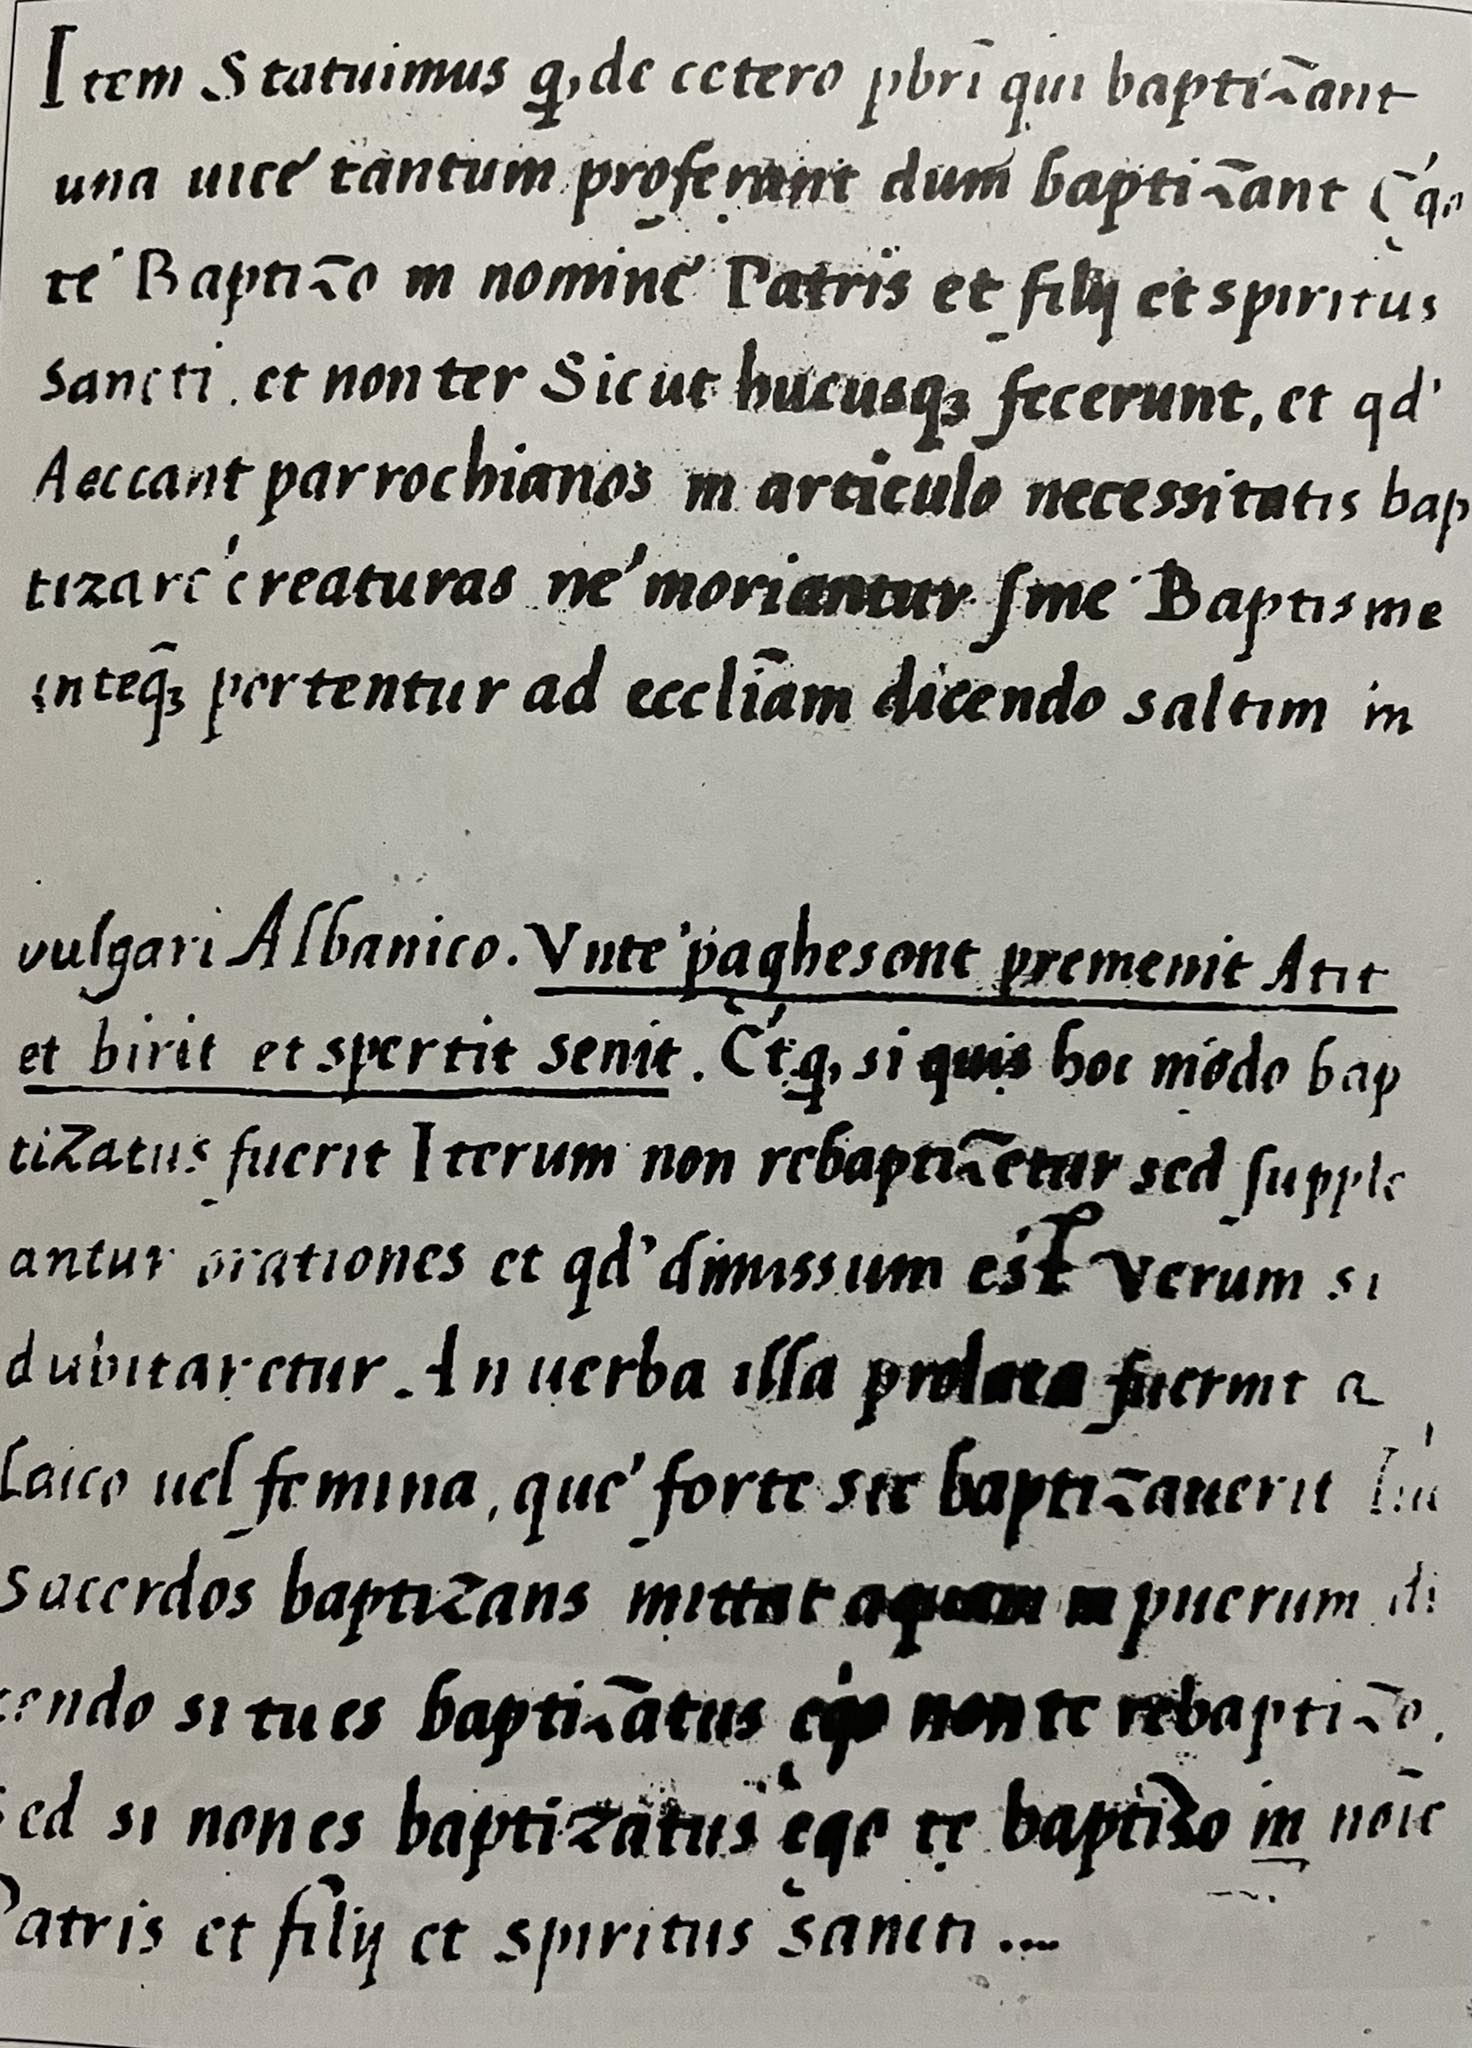 Item Statuimus q, de cetero pbrī qui baptizant
una uice tantum proferant dum baptizant Ego
te Baptizo in nomine Patris et filij et spiritus
sancti. et non ter Sicut hucusqȝ fecerunt, et qd'
Aeccant parrochianos in articulo necessitatis bap
tizare creaturas ne moriantur sine Baptisme
inteqȝ portentur ad eccliām dicendo saltim in
vulgari Albanico. Vnte' paghesont premenit Atit
et birit et spertit senit. Et q, si quis hoc modo bap
tizatus fuerit Iterum non rebaptizetur sed supple
antur orationes et qd' dimissum est Verum si
dubitaretur. An uerba illa prolata fuerint a
Laico uel femina, que' forte sic baptizauerit
Sacerdos baptizans mittat aquam in puerum di
cendo si tu es baptizatus ego non te rebaptizo.
Sed si non es baptizatus ego te baptizo in noīe
Patris et filij et spiritus sancti ....